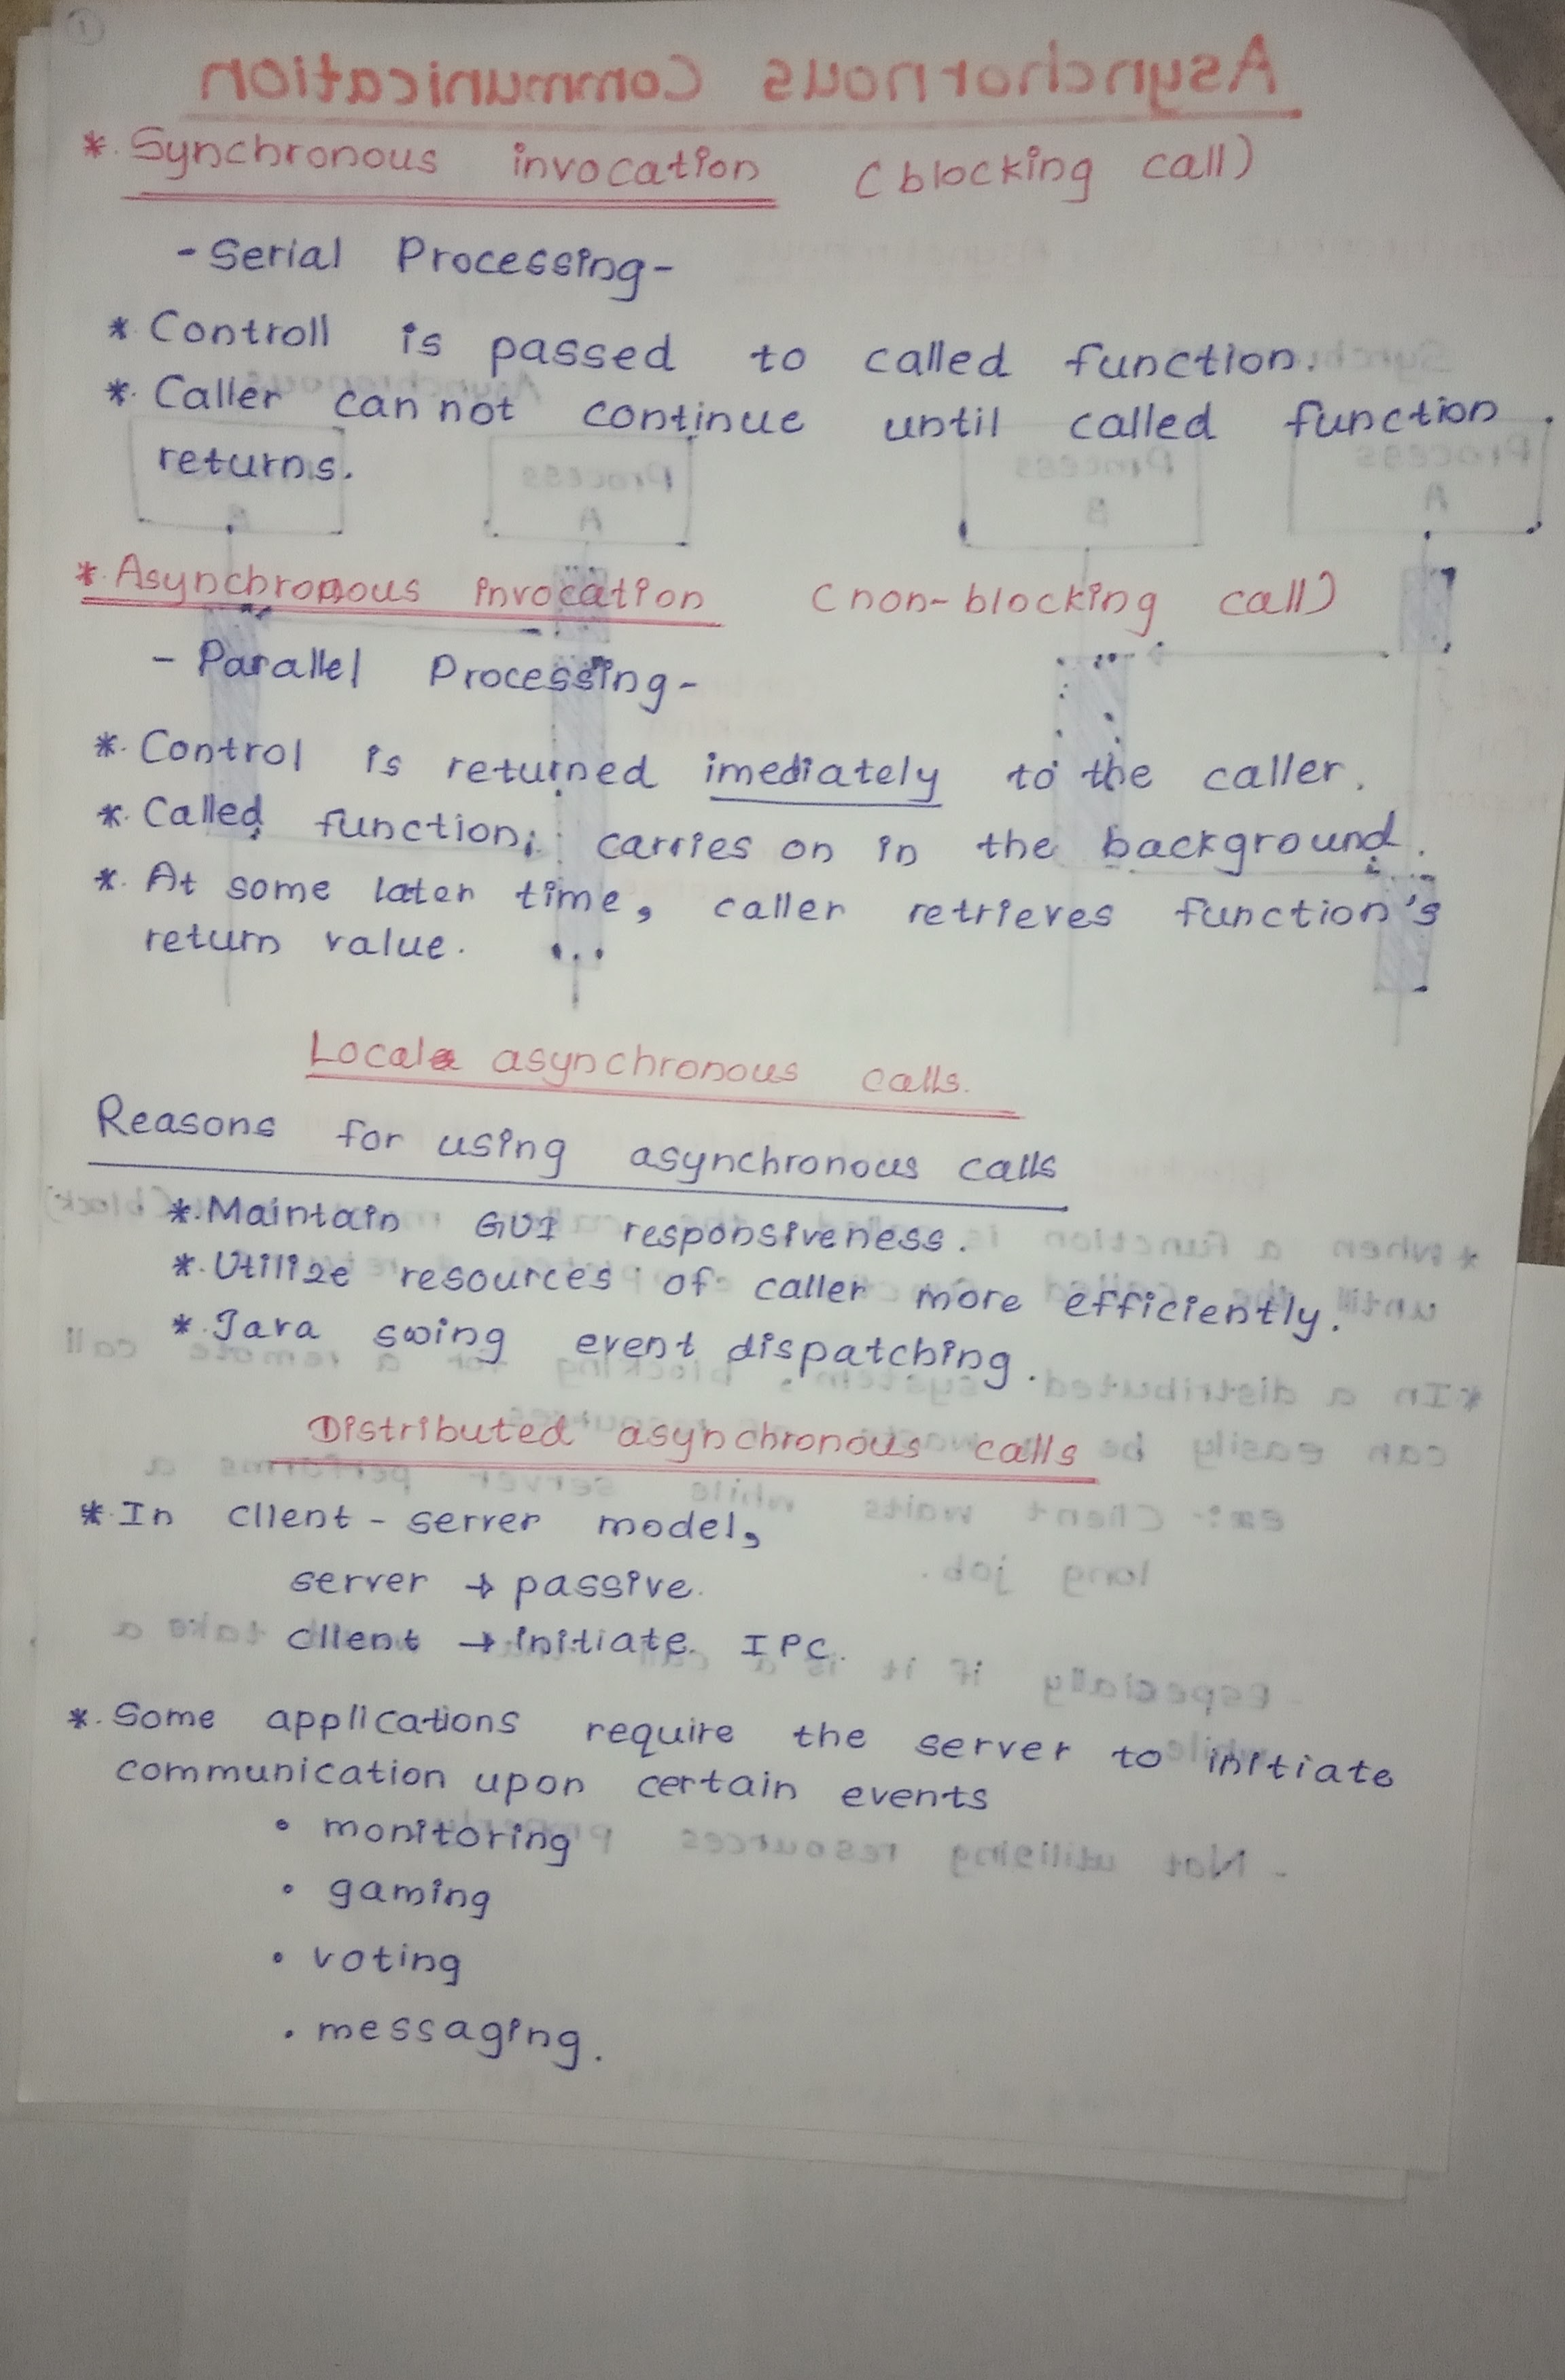 * Synchronous invocation (blocking call)
- Serial Processing -
* Controll is passed to called function.
* Caller can not continue until called function
returns.
* Asynchronous invocation (non-blocking call)
- Parallel Processing -
* Control is returned imediately to the caller.
* Called function; carries on in the background.
* At some later time, caller retrieves function's
return value.
Local asynchronous calls.
Reasons for using asynchronous calls
* Maintain GUI responsiveness.
* Utilize resources of caller more efficiently.
* Java swing event dispatching.
Distributed asynchronous calls
* In client - server model,
server → passive.
client → initiate IPC.
* Some applications require the server to initiate
communication upon certain events
• monitoring
• gaming
• voting
• messaging.